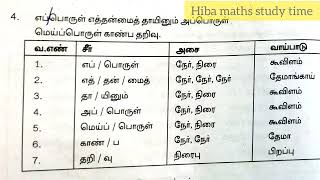 Hiba maths study time
4. எப்பொருள் எத்தன்மைத் தாயினும் அப்பொருள்
மெய்ப்பொருள் காண்ப தறிவு.
வ.எண் சீர் அசை வாய்பாடு
1. எப் / பொருள் நேர், நிரை கூவிளம்
2. எத் / தன் / மைத் நேர், நேர், நேர் தேமாங்காய்
3. தா / யினும் நேர், நிரை கூவிளம்
4. அப் / பொருள் நேர், நிரை கூவிளம்
5. மெய்ப் / பொருள் நேர், நிரை கூவிளம்
6. காண் / ப நேர், நேர் தேமா
7. தறி / வு நிரைபு பிறப்பு